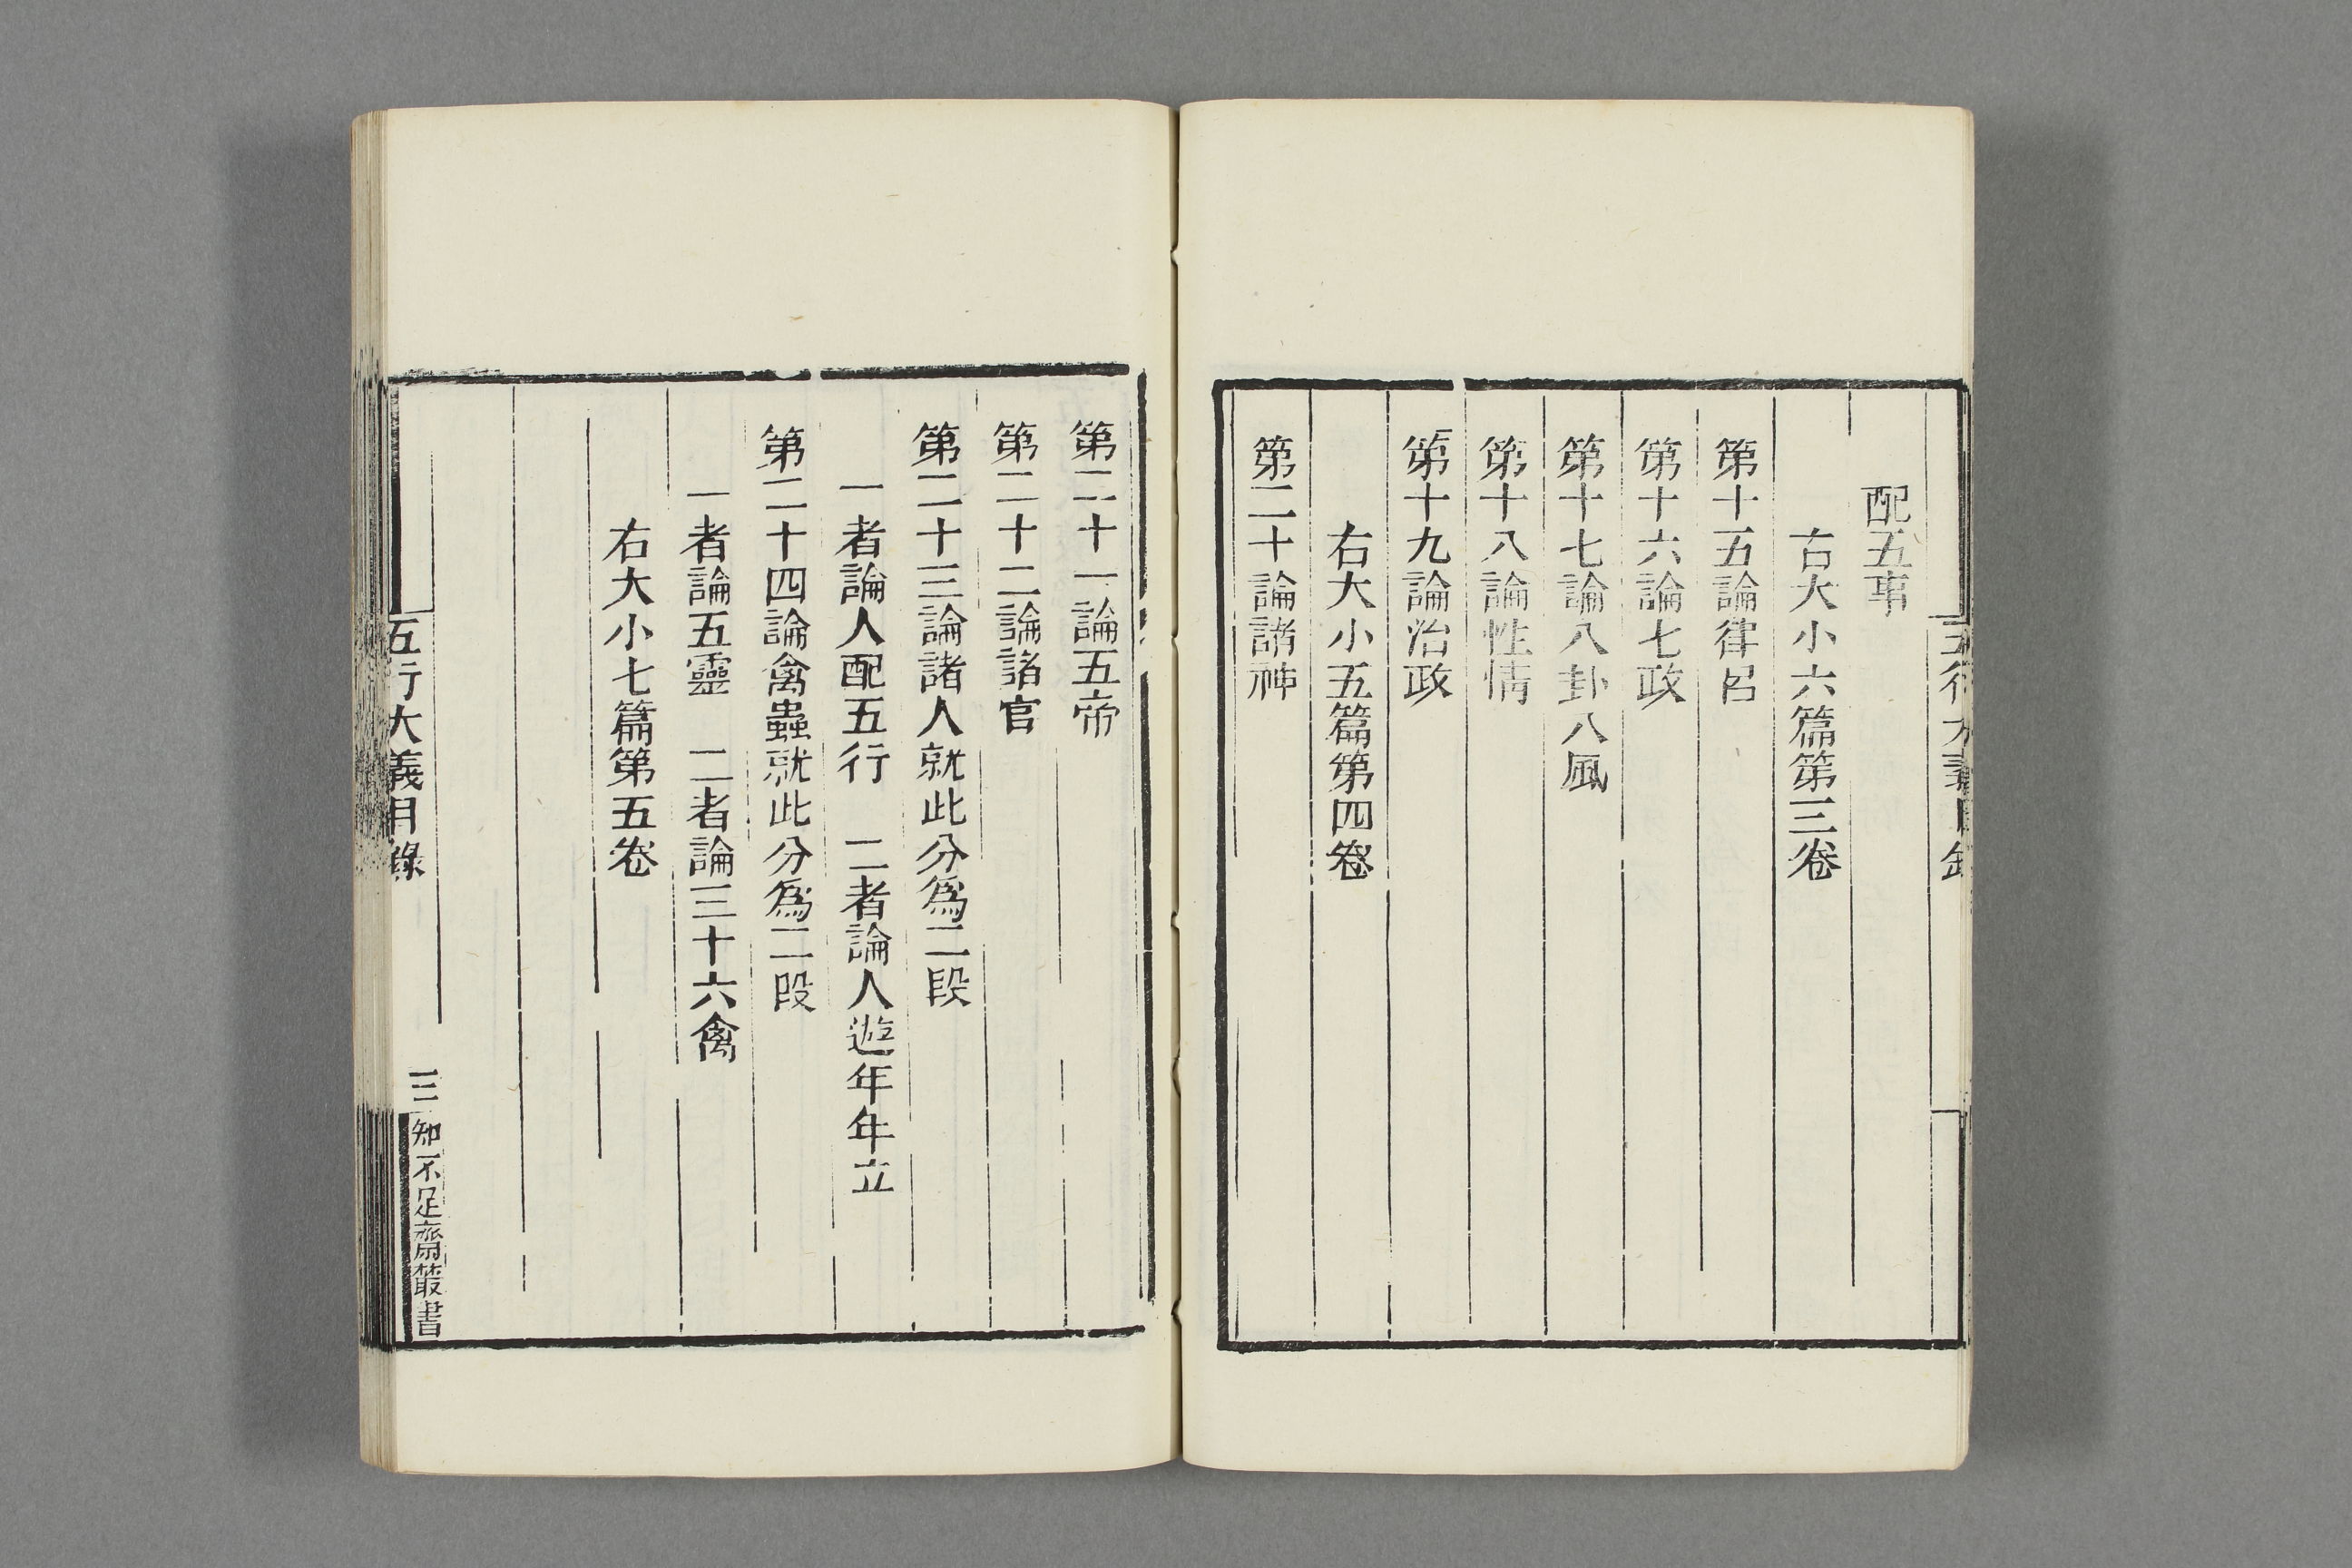 配五事
右大小六篇第三卷
第十五論律呂
第十六論七政
第十七論八卦八風
第十八論性情
第十九論治政
右大小五篇第四卷
第二十論諸神
第二十一論五帝
第二十二論諸官
第二十三論諸人就此分爲二段
一者論人配五行　二者論人遊年年立
第二十四論禽蟲就此分爲二段
一者論五靈　二者論三十六禽
右大小七篇第五卷
五行大義目錄
三
知不足齋叢書